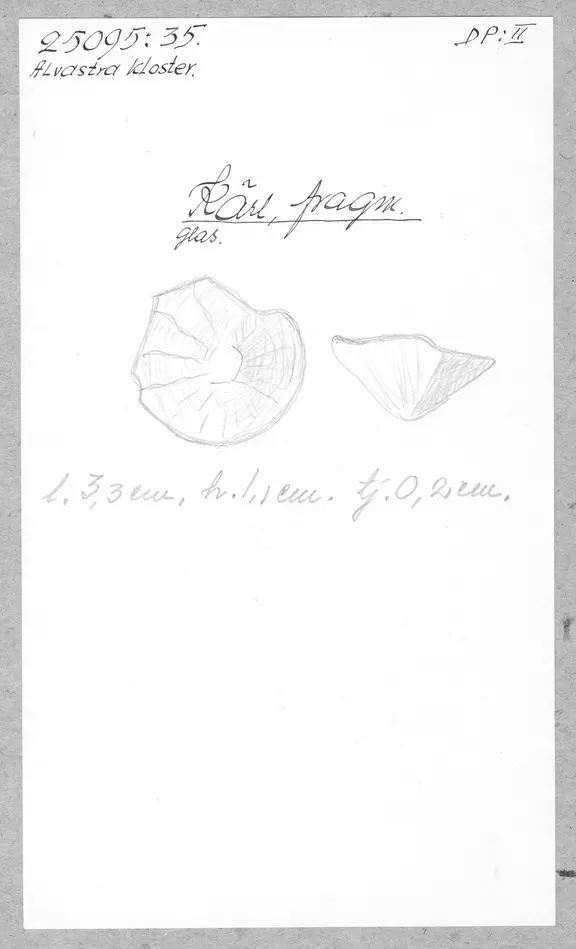 25095:35.
DP:II
Alvastra kloster.
Kärl, fragm.
glas.
l. 3,3 cm, br. 1,1 cm. tj. 0,2 cm.